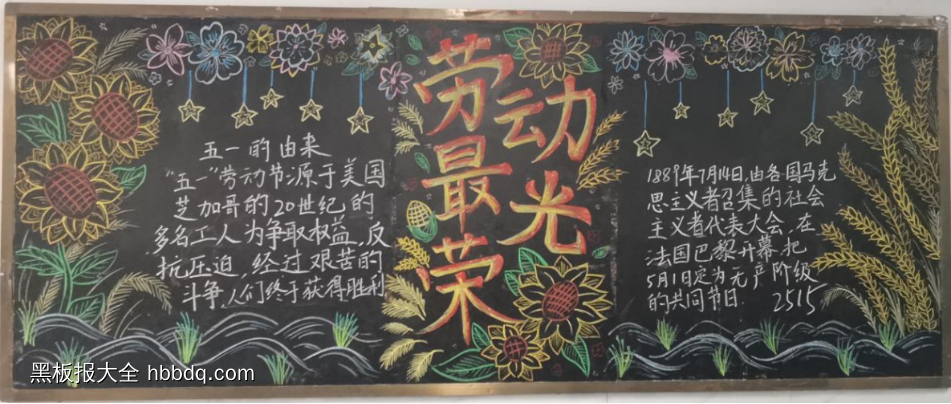 劳动
最光
荣
五一的由来
"五一"劳动节源于美国
芝加哥的20世纪的
多名工人为争取权益,反
抗压迫,经过艰苦的
斗争,人们终于获得胜利
1889年7月14日,由各国马克
思主义者召集的社会
主义者代表大会,在
法国巴黎开幕,把
5月1日定为无产阶级
的共同节日.
2515
黑板报大全 hbbdq.com